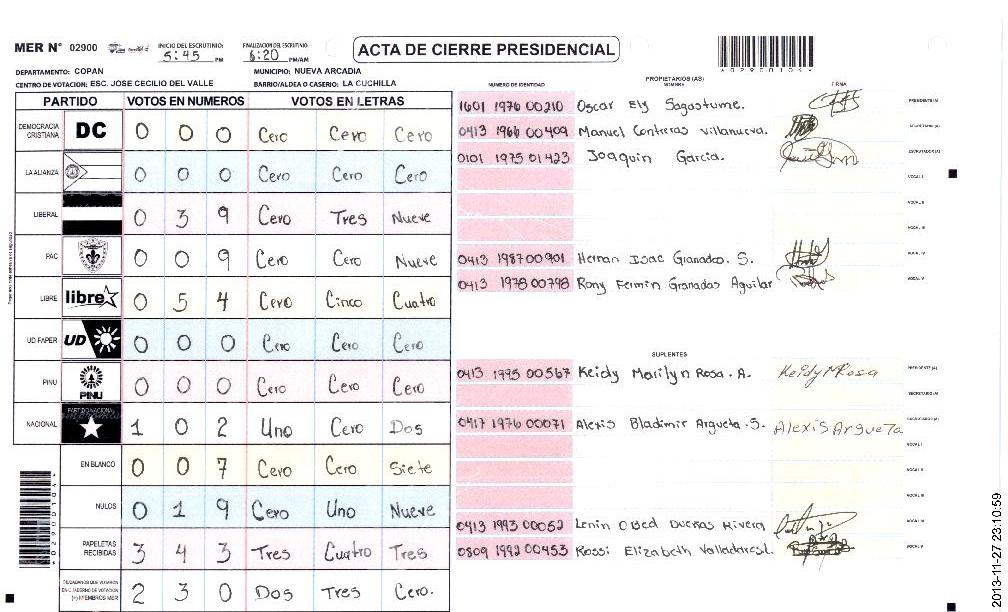 MER N° 02900
INICIO DEL ESCRUTINIO: 5:45 PM
FINALIZACION DEL ESCRUTINIO: 6:20 PM/AM
ACTA DE CIERRE PRESIDENCIAL
DEPARTAMENTO: COPAN
MUNICIPIO: NUEVA ARCADIA
CENTRO DE VOTACION: ESC. JOSE CECILIO DEL VALLE
BARRIO/ALDEA O CASERIO: LA CUCHILLA
PARTIDO VOTOS EN NUMEROS VOTOS EN LETRAS
DEMOCRACIA CRISTIANA DC 0 0 0 Cero Cero Cero
LA ALIANZA 0 0 0 Cero Cero Cero
LIBERAL 0 3 9 Cero Tres Nueve
PAC 0 0 9 Cero Cero Nueve
LIBRE libre 0 5 4 Cero Cinco Cuatro
UD-FAPER UD 0 0 0 Cero Cero Cero
PINU PINU 0 0 0 Cero Cero Cero
NACIONAL PARTIDO NACIONAL 1 0 2 Uno Cero Dos
EN BLANCO 0 0 7 Cero Cero Siete
NULOS 0 1 9 Cero Uno Nueve
PAPELETAS RECIBIDAS 3 4 3 Tres Cuatro Tres
CIUDADANOS QUE VOTARON EN CUADERNO DE VOTACION (+) MIEMBROS MER 2 3 0 Dos Tres Cero.
PROPIETARIOS (AS)
NUMERO DE IDENTIDAD NOMBRE FIRMA
1601 1976 00210 Oscar Ely Sagastume. PRESIDENTE (A)
0413 1966 00409 Manuel Contreras Villanueva. SECRETARIO (A)
0101 1975 01423 Joaquin Garcia. ESCRUTADOR (A)
VOCAL I
VOCAL II
VOCAL III
0413 1987 00901 Hernan Isac Granados. S. VOCAL IV
0413 1978 00798 Rony Fermin Granados Aguilar VOCAL V
SUPLENTES
0413 1995 00567 Keidy Marilyn Rosa. A. Keidy M Rosa PRESIDENTE (A)
SECRETARIO (A)
0417 1976 00071 Alexis Bladimir Argueta.S. Alexis Argueta ESCRUTADOR (A)
VOCAL I
VOCAL II
VOCAL III
0413 1993 00052 Lenin Obed Dueñas Rivera VOCAL IV
0809 1992 00453 Rossi Elizabeth Valladares L. VOCAL V
2013-11-27 23:10:59